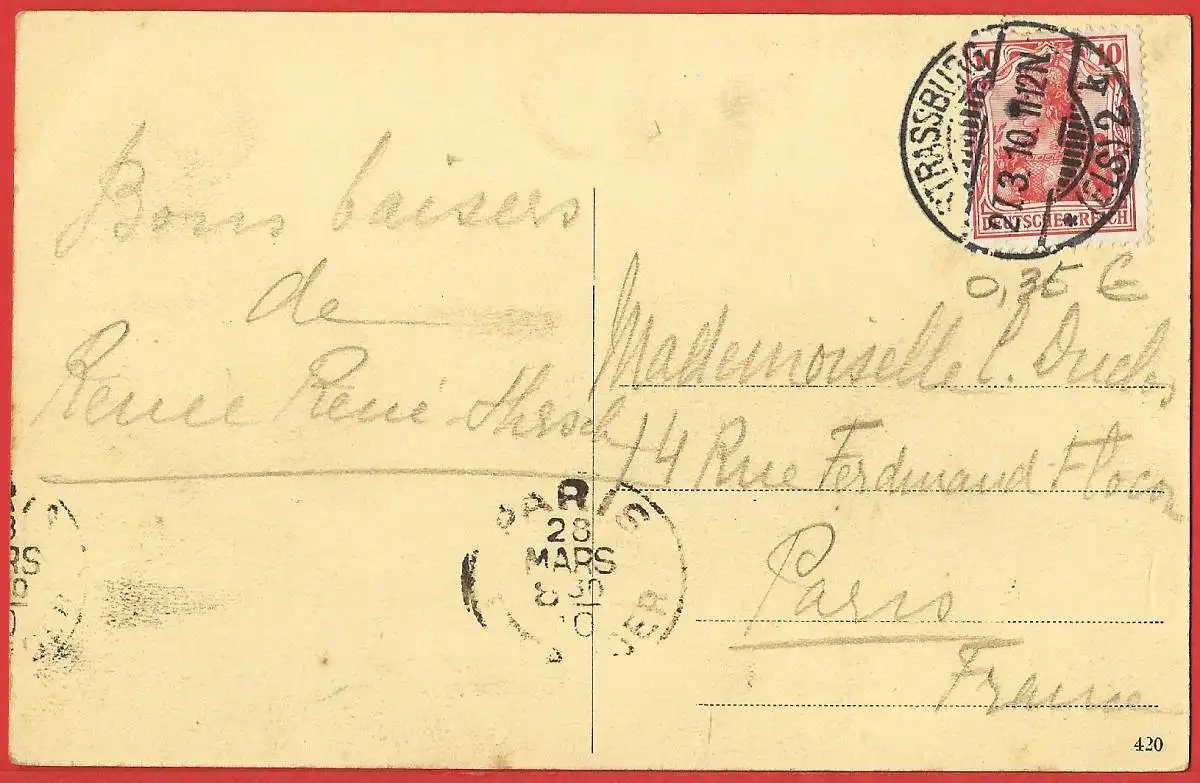 STRASSBURG
27.3.10.11-12N.
* (ELS) 2 k
10 10
DEUTSCHES REICH
0,35 €
Bons baisers
de
Renée René Hirsch
Mademoiselle L.
14 Rue Ferdinand Flocon
Paris
France
PARIS
28
MARS
8 30
10
420